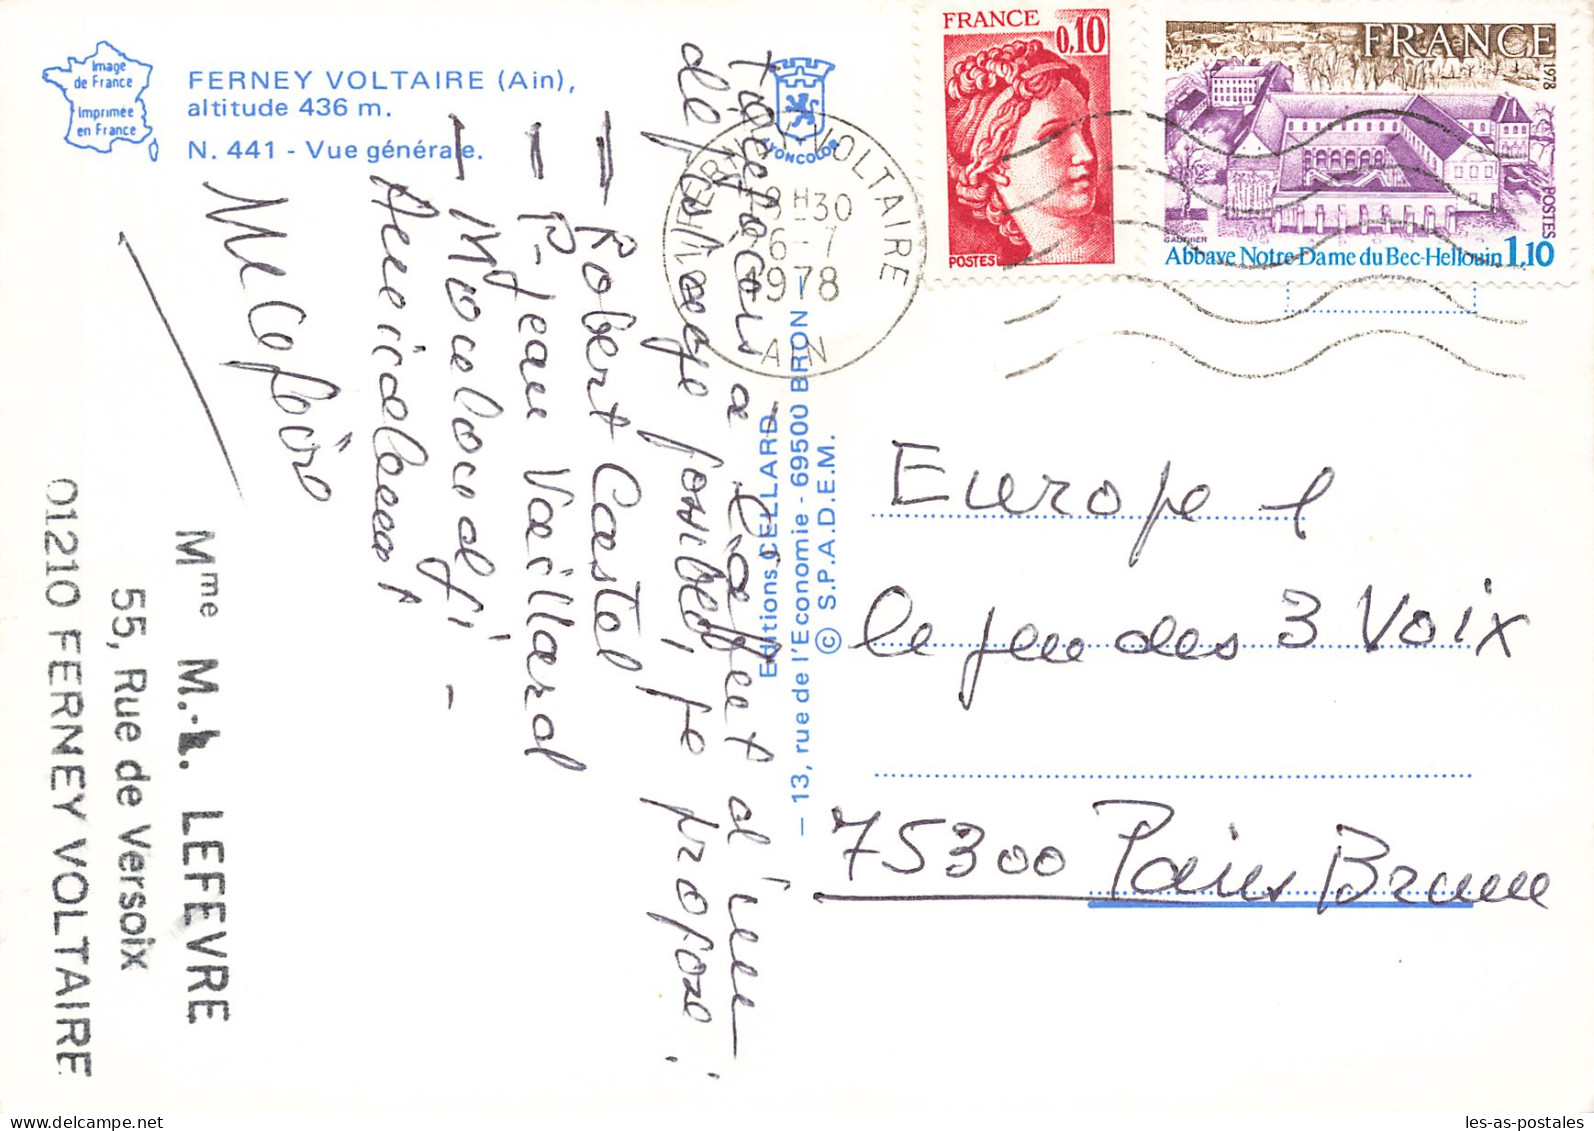 Image
de France
Imprimée
en France
FERNEY VOLTAIRE (Ain),
altitude 436 m.
N. 441 - Vue générale.
LYONCOLOR
Editions CELLARD
— 13, rue de l'Economie - 69500 BRON
© S.P.A.D.E.M.
FERNEY VOLTAIRE
18H30
6-7
1978
AIN
FRANCE
0,10
POSTES
FRANCE
1978
POSTES
GAUTHIER
Abbaye Notre-Dame du Bec-Hellouin 1,10
a l'effet d'un
dépistage possible, je propose :
— Robert Castel
— P. Jean Vaillard
—
Amicalement
M Lefèvre
Mme M.-L. LEFEVRE
55, Rue de Versoix
01210 FERNEY VOLTAIRE
Europe 1
le jeu des 3 Voix
75300 Paris Brune
les-as-postales.com